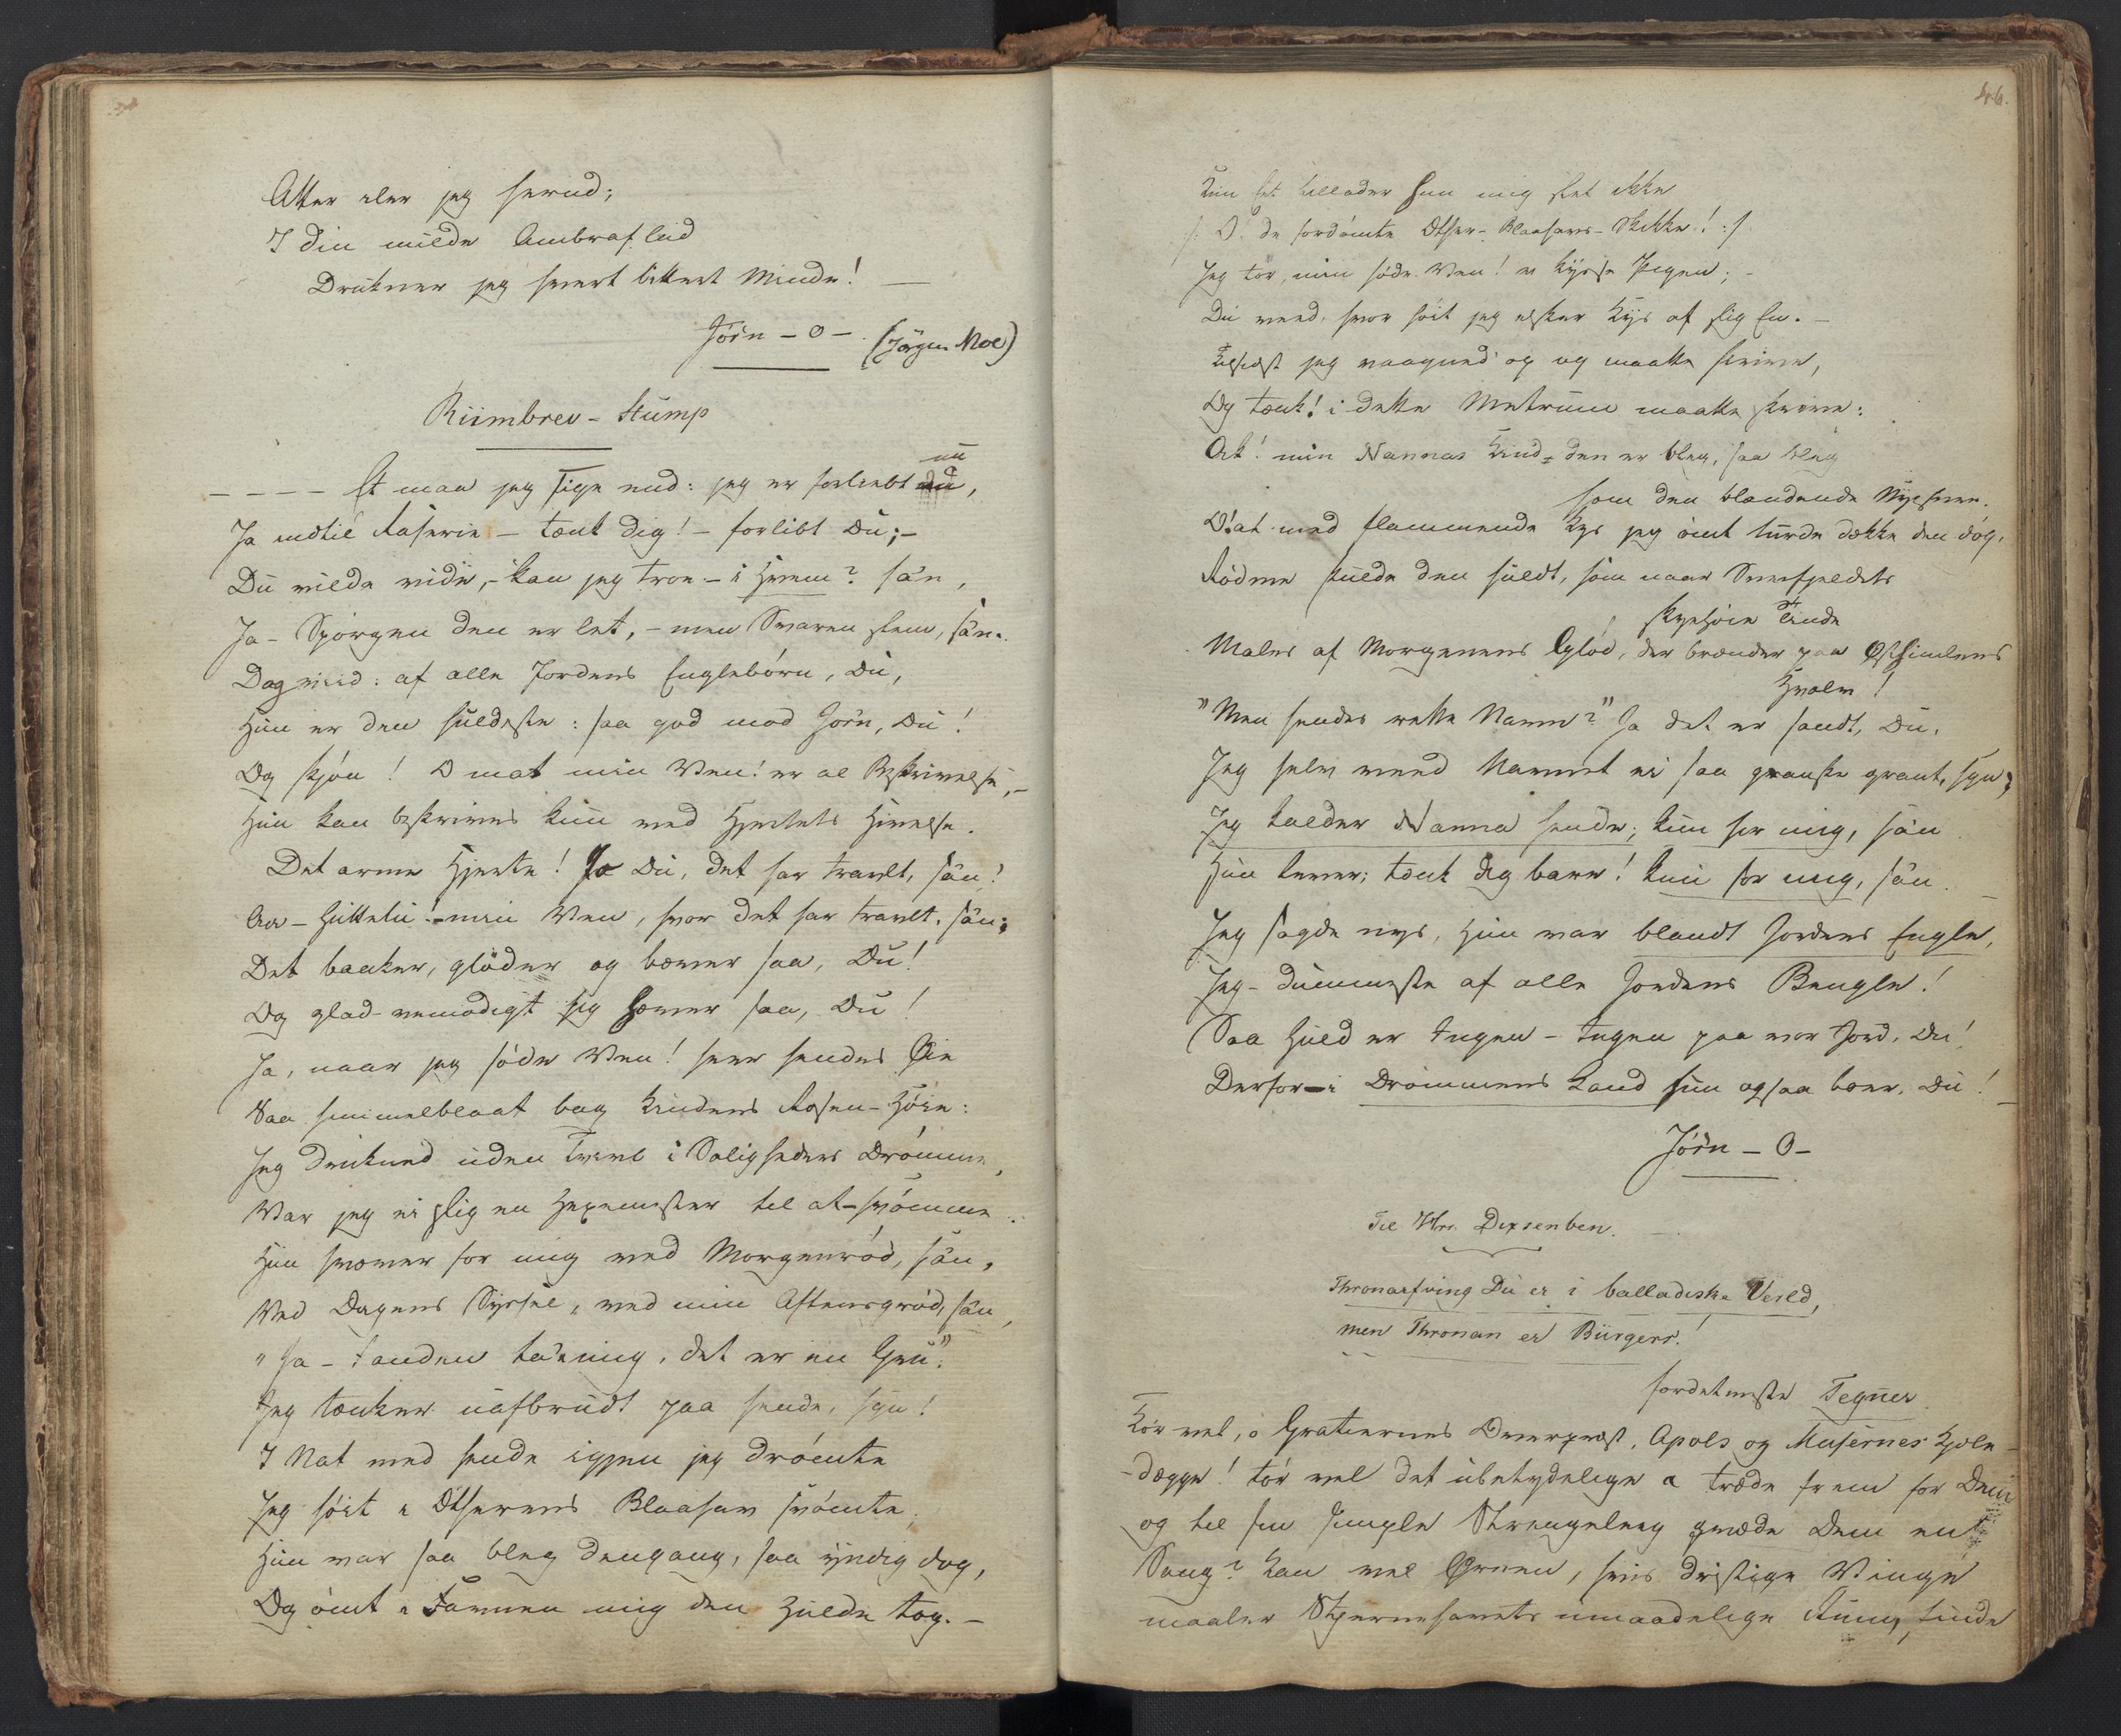 Atter iler jeg herud;
I din milde Ambraflod
Drukner jeg hvert bittert Minde! —
Jörn – o – (Jörgen Moe)
Riimbrev – Stump
– – – – Et maa jeg sige med: jeg er forliebt nu,
Ja indtil Raserie – tænk dig! – forlibt Du; –
Du vilde vide, – kan jeg troe – i Hvem? sån,
Ja – Spörgen den er let, – men Svaren slem, sån.
Dog viid: af alle Jordens Englebörn, Du,
Hun er den huldeste: saa god mod Jörn, Du!
Og skjön! O mat min Ven! er al Beskrivelse, –
Hun kan beskrives kun med Hjertets Hivelse.
Det arme Hjerte! Ja Du, det har travlt, sån!
Aa – Huttetu! – min Ven, hvor det har travlt, sån;
Det banker, glöder og bæver saa, Du!
Og glad-vemodigt sig hæver saa, Du!
Ja, naar jeg söde Ven! seer hendes Öie
Saa himmelblaat bag Kindens Rosen-Höie:
Jeg drukned uden Tvivl i Salighedens Drömme,
Var jeg ei slig en Hexemester til at svömme.
Hun svæver for mig ved Morgenröd, sån,
Ved Dagens Syssel, ved min Aftensgröd, sån,
"Ja – Fanden ta'e mig, det er en Gru".
Jeg tænker uafbrudt paa hende, sgu!
I Nat med hende igjen jeg drömte
Jeg höit i Ætherens Blaahav svömte,
Hun var saa bleg dengang, saa yndig dog,
Og ömt i Favnen mig den Hulde tog. –
46.
Kun Et tillader hun mig slet ikke
/: O de fordömte Æther-Blaahavs-Skikke! :/
Jeg tör, min söde Ven! ei kysse Pigen; –
Du veed, hvor höit jeg elsker Kys af slig En. –
Tilsidst jeg vaagned op og maatte skrive,
Og tænk! i dette Metrum maatte skrive:
Ak! min Nannas Kind – den er bleg, saa bleg
som den blændende Nysnee.
O! at med flammende Kys jeg ömt turde dække den dög,
Rödme skulde den huldt, som naar Sneefjeldets
skyehöie Tinde
Males af Morgenens Glöd, der brænder paa Østhimlens
Hvalv!
"Men hendes rette Navn?" Ja det er sandt, Du,
Jeg selv veed Navnet ei saa ganske grant, sgu;
Jeg kalder Nanna hende; kun for mig, sån
Hun lever; tænk dig bare! kun for mig, sån. –
Jeg sagde nys, Hun var blandt Jordens Engle,
Jeg – dummeste af alle Jordens Bengle!
Saa Huld er Ingen – Ingen paa vor Jord, Du!
Derfor – i Drömmens Land hun ogsaa boer, Du! –
Jörn – O –
Til Hrr. Dixenben.
Thronarfving Du er i balladiska Verld,
men Thronan er Bürgers!
fordetmeste Tegner
Tör vel, o Gratiernes Overpræst, Apols og Musernes Kjæle-
-dægge! tör vel det ubetydelige a træde frem for Dem
og til sin simple Strængeleeg qvæde Dem en
Sang? Kan vel Ørnen, hvis dristige Vinge
maaler Stjernehavets umaadelige Rum, finde